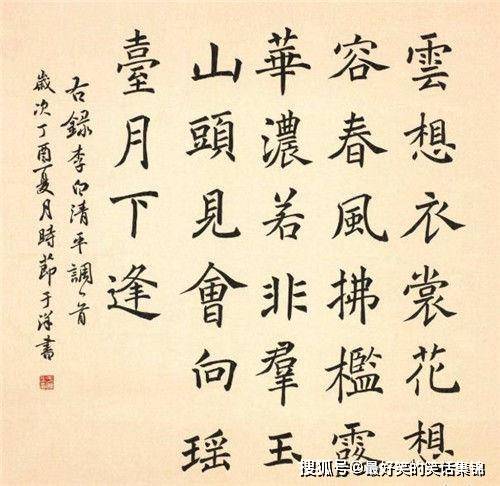 雲想衣裳花想
容春風拂檻露
華濃若非羣玉
山頭見會向瑶
臺月下逢
右錄李白清平調一首
歲次丁酉夏月時節于洋書
搜狐号@最好笑的笑话集锦